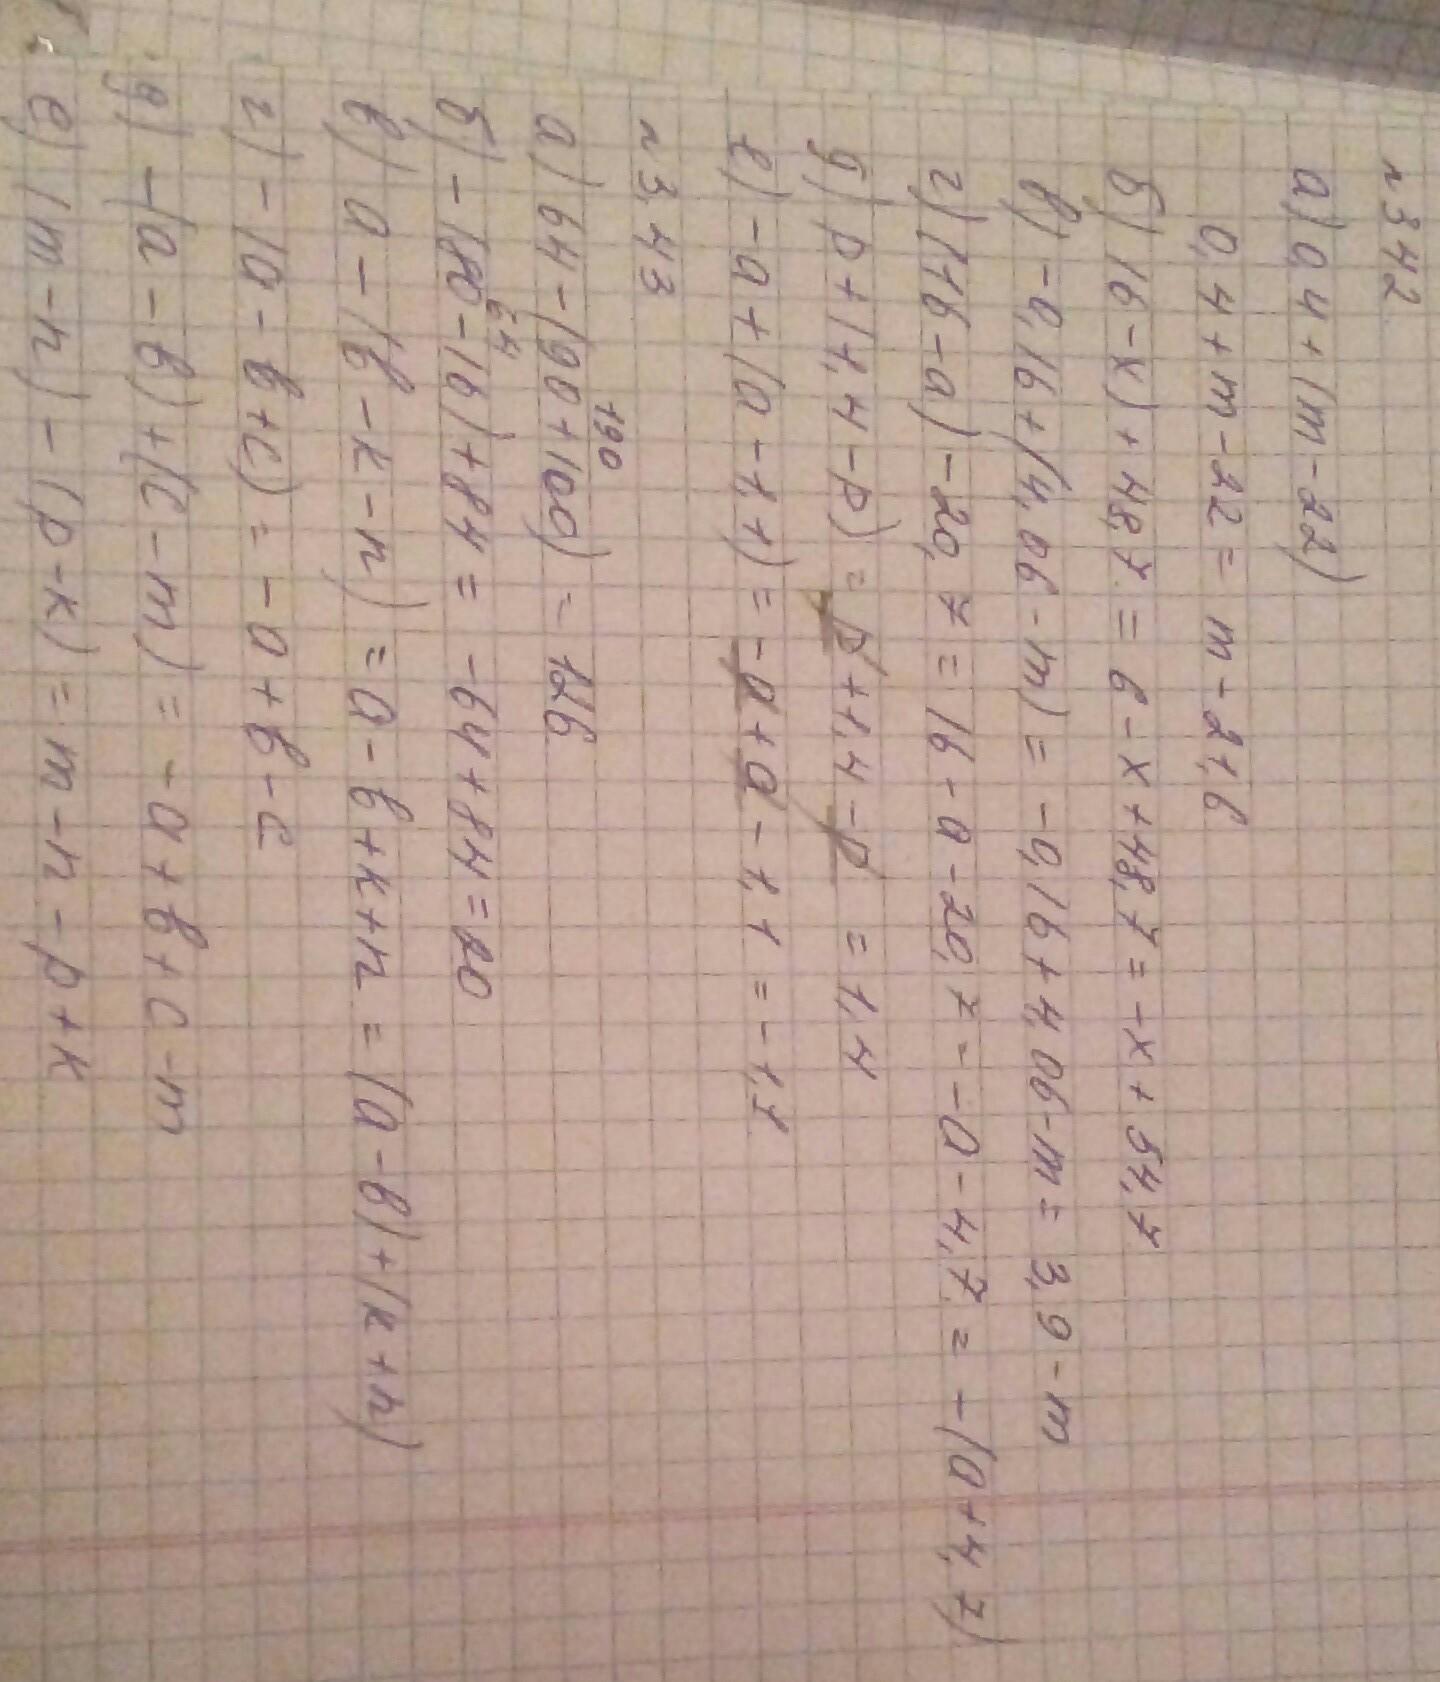 n 342.
а) 0,4 + (m - 22)
0,4 + m - 22 = m - 21,6
б) (6 - x) + 48,7 = 6 - x + 48,7 = -x + 54,7
в) -0,16 + (4,06 - m) = -0,16 + 4,06 - m = 3,9 - m
г) (16 - a) - 20,7 = 16 - a - 20,7 = -a - 4,7 = -(a + 4,7)
д) p + (1,4 - p) = p + 1,4 - p = 1,4
е) -a + (a - 1,1) = -a + a - 1,1 = -1,1
n 343
190
а) 64 - (90 + 100) = 126
64
б) -(80 - 16) + 84 = -64 + 84 = 20
в) a - (в - к - n) = a - в + к + n = (a - в) + (к + n)
г) - (a - в + c) = -a + в - c
д) -(a - в) + (c - m) = -a + в + c - m
е) (m - n) - (p - к) = m - n - p + к